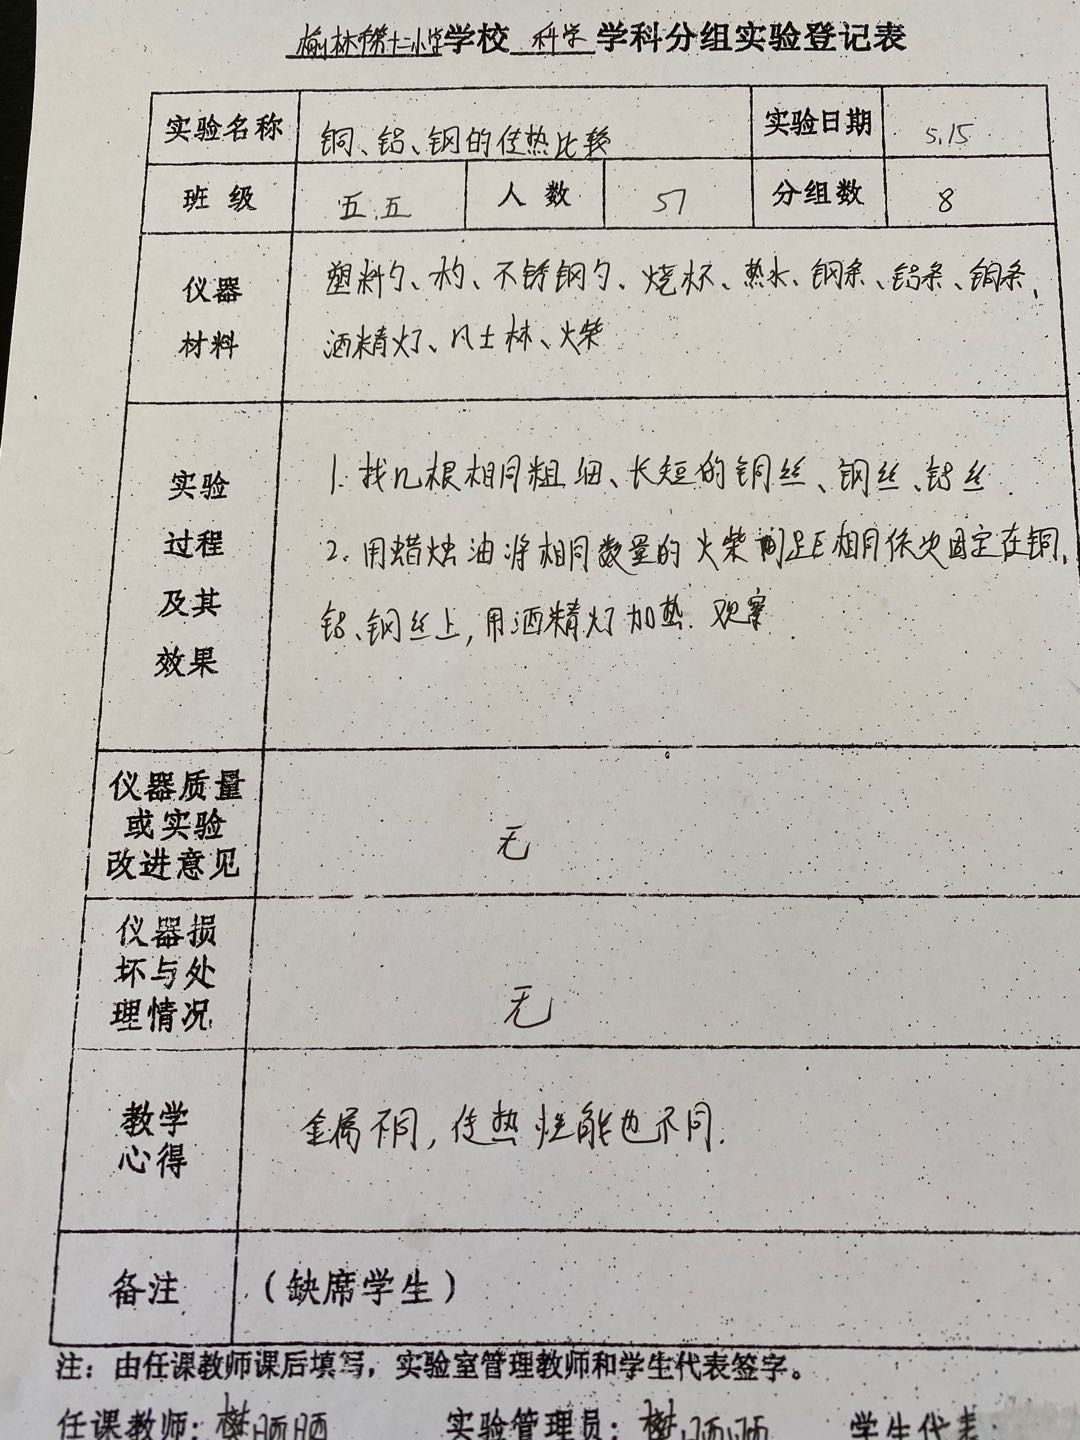 榆林市第十二小学学校 科学 学科分组实验登记表
实验名称 铜、铝、钢的传热比较 实验日期 5.15
班级 五.五 人数 57 分组数 8
仪器材料 塑料勺、木勺、不锈钢勺、烧杯、热水、钢条、铝条、铜条、
酒精灯、凡士林、火柴
实验过程及其效果 1.找几根相同粗细、长短的铜丝、钢丝、铝丝.
2.用蜡烛油将相同数量的火柴间距相同依次固定在铜、
铝、钢丝上,用酒精灯加热.观察.
仪器质量或实验改进意见 无
仪器损坏与处理情况 无
教学心得 金属不同,传热性能也不同.
备注 (缺席学生)
注:由任课教师课后填写,实验室管理教师和学生代表签字。
任课教师: 实验管理员: 学生代表